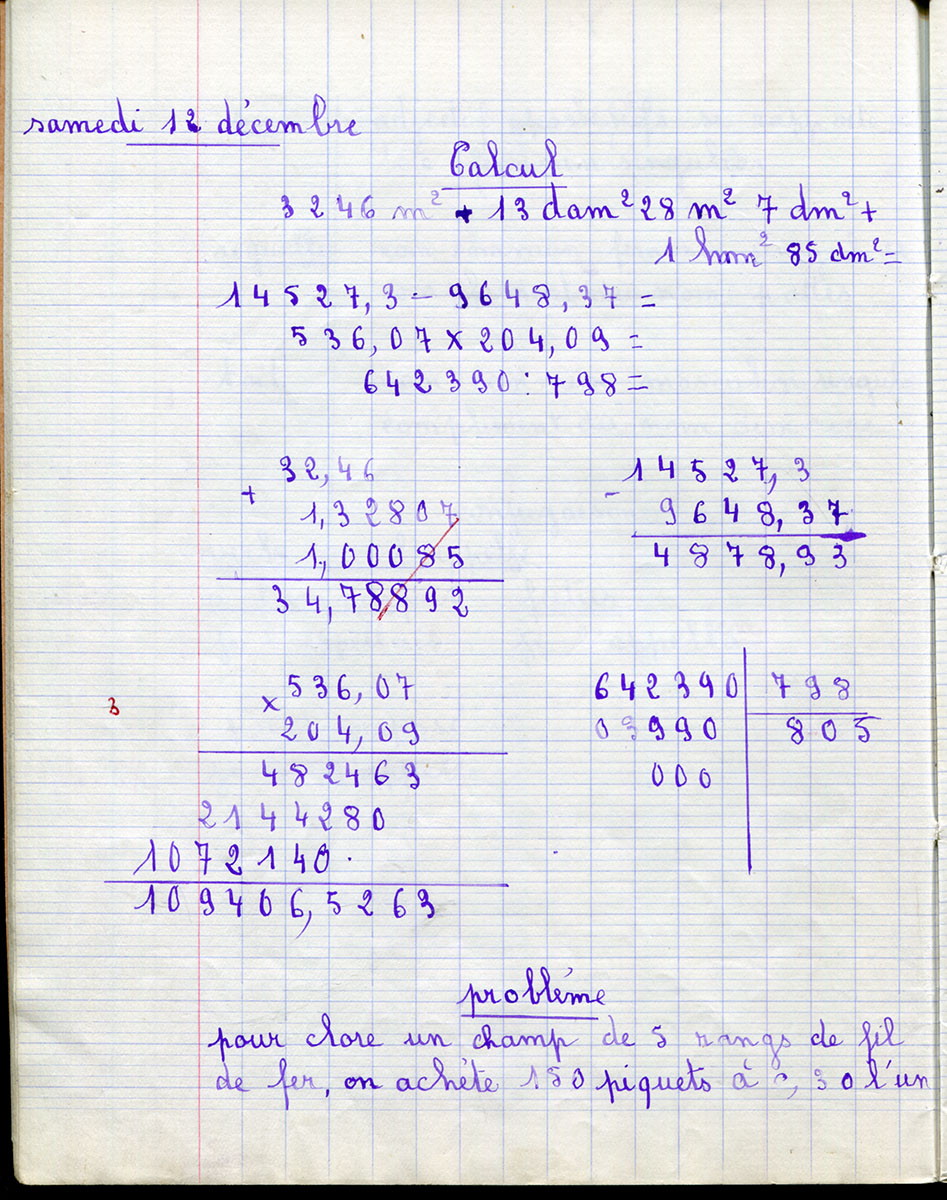 samedi 12 décembre
Calcul
3246 m² + 13 dam² 28 m² 7 dm² +
1 hm² 85 dm² =
14527,3 - 9648,37 =
536,07 x 204,09 =
642390 : 798 =
32,46
+ 1,32807
1,00085
34,78892
- 14527,3
9648,37
4878,93
3
536,07
x 204,09
482463
2144280
1072140.
109406,5263
642390 798
03990 805
000
probléme
pour clore un champ de 5 rangs de fil
de fer, on achète 150 piquets à ,30 l'un